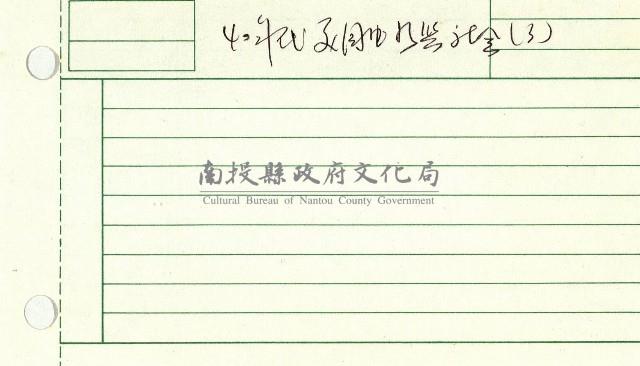 年代美國
社會(3)
南投縣政府文化局
Cultural Bureau of Nantou County Government